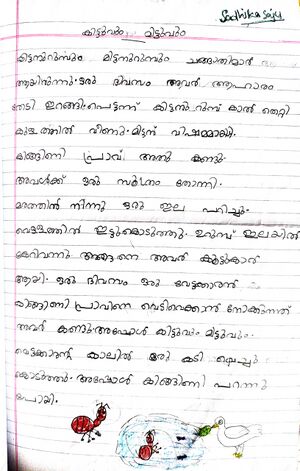 Sadhika Saju
കിട്ടുവും മിട്ടുവും
കിട്ടനുറുമ്പും മിട്ടനുറുമ്പും ചങ്ങാതിമാർ
ആയിരുന്നു. ഒരു ദിവസം അവർ ആഹാരം
തേടി ഇറങ്ങി. പെട്ടന്ന് കിട്ടനുറുമ്പ് കാൽ തെറ്റി
കുളത്തിൽ വീണു. മിട്ടന് വിഷമമായി.
കിങ്ങിണി പ്രാവ് അതു കണ്ടു.
അവൾക്ക് ഒരു സൂത്രം തോന്നി.
മരത്തിൻ നിന്നു ഒരു ഇല പറിച്ചു.
വെള്ളത്തിൻ ഇട്ടുകൊടുത്തു. ഉറുമ്പ് ഇലയിൽ
കേറിവന്നു അങ്ങനെ അവർ കൂട്ടുകാർ
ആയി. ഒരു ദിവസം ഒരു വേട്ടക്കാരൻ
കിങ്ങിണി പ്രാവിനെ വെടിവെക്കാൻ നോക്കുന്നത്
അവർ കണ്ടു. അപ്പോൾ കിട്ടുവും മിട്ടുവും.
വേട്ടക്കാരന്റെ കാലിൽ ഒരു കടി വെച്ചു
കൊടുത്തു. അപ്പോൾ കിങ്ങിണി പറന്നു
പോയി.